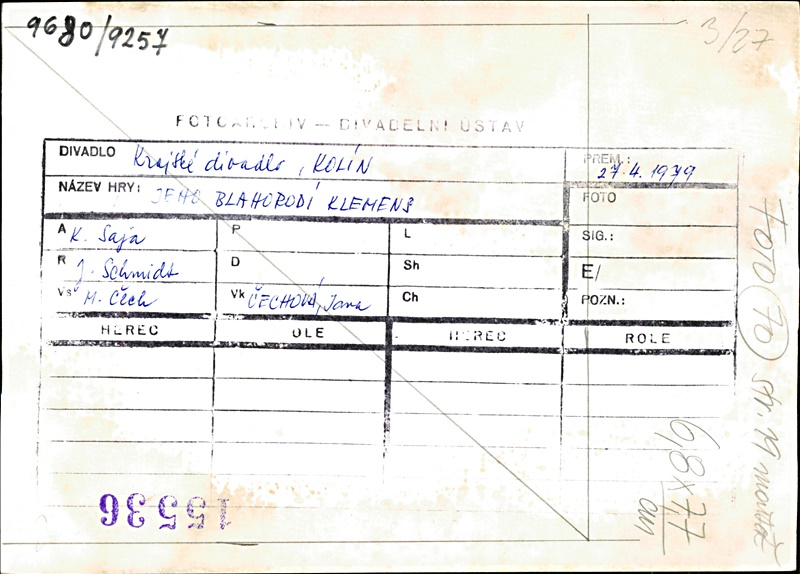 9680/9257
3/27
FOTOARCHIV — DIVADELNÍ ÚSTAV
DIVADLO Krajské divadlo, KOLÍN
PREM.: 27. 4. 1979
NÁZEV HRY: JEHO BLAHORODÍ KLEMENS
FOTO
A K. Saja P L SIG.:
R J. Schmidt D Sh E/
Vs M. Čech Vk ČECHOVÁ, Jana Ch POZN.:
HEREC ROLE HEREC ROLE
FOTO (70) str. 19
6,8 x 7,7
cm
15536